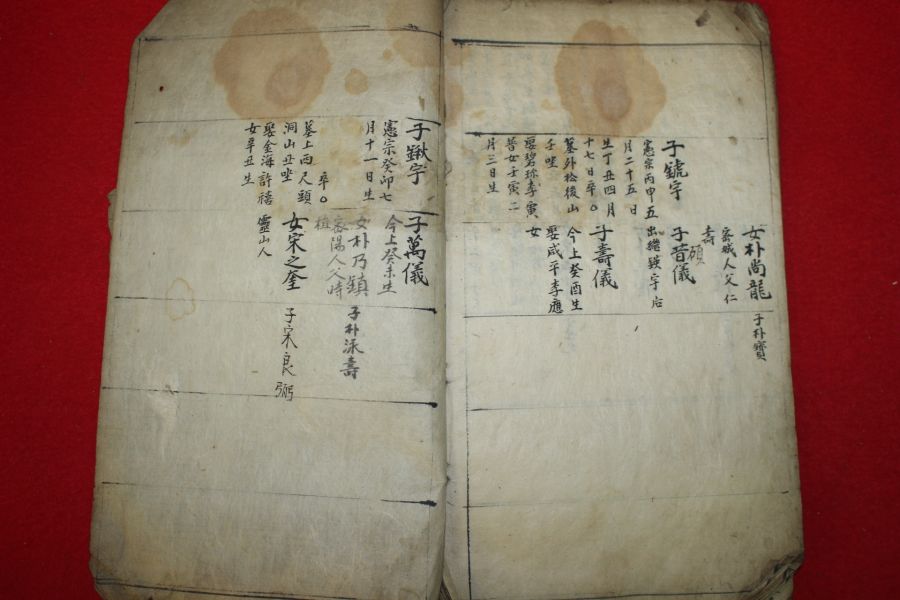 女朴尚龍
子朴寶
密城人父仁
壽
子宇
憲宗丙申五
月二十五日
生丁丑四月
十七日卒〇
墓外松後山
壬坐
娶碧珍李寅
普女壬寅二
月三日生
碩
子昔儀
出繼宇后
子壽儀
今上癸酉生
娶咸平李應
女
子鍬宇
憲宗癸卯七
月十一日生
卒〇
墓上西尺頭
洞山丑坐
娶金海許禧
女辛丑生
子萬儀
今上癸未生
女朴乃鎮
密陽人父時
子朴泳壽
女宋之奎
靈山人
子宋良弼